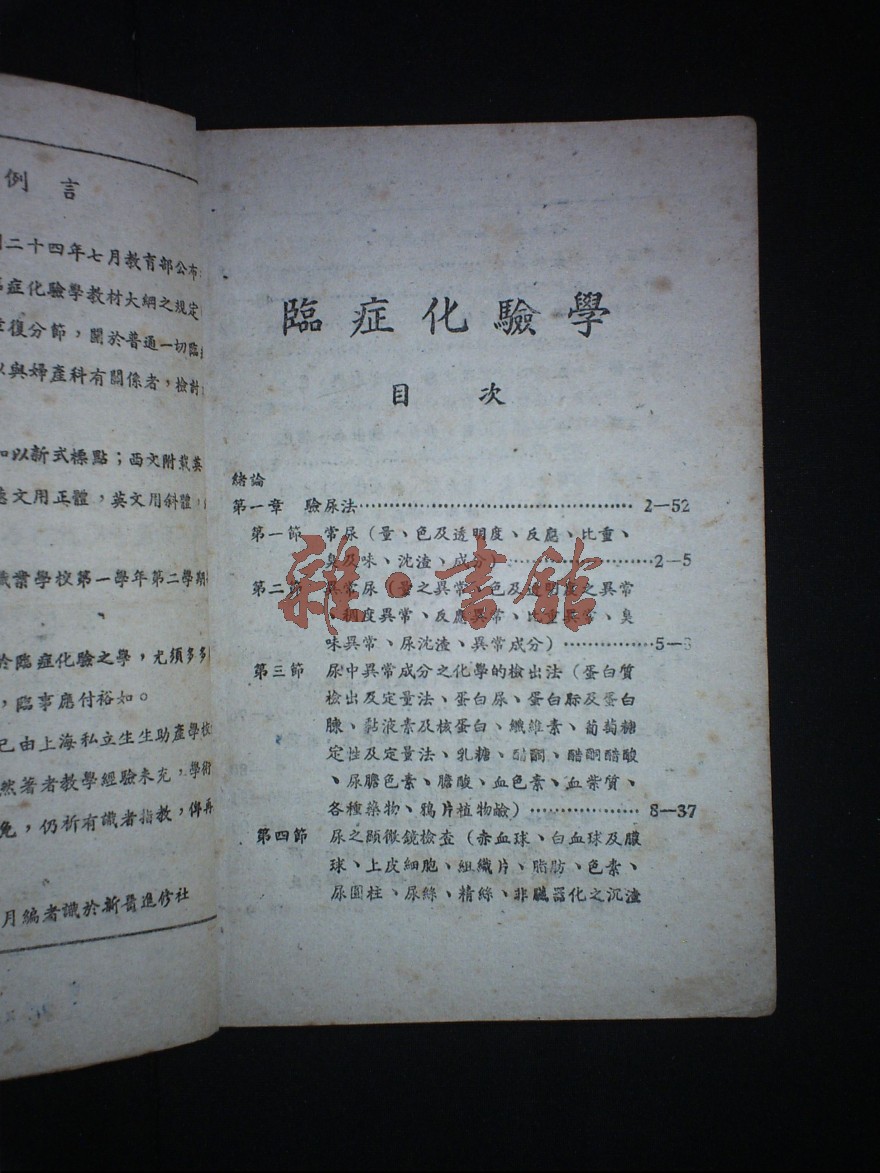 例言
二十四年七月教育部公布
症化驗學教材大綱之規定
復分節，關於普通一切臨
以與婦產科有關係者，檢討
以新式標點；西文附載英
文用正體，英文用斜體，
職業學校第一學年第二學期
於臨症化驗之學，尤須多多
，臨事應付裕如。
已由上海私立生生助產學校
然著者教學經驗未充，學術
免，仍祈有識者指教，俾再
月編者識於新醫進修社
臨症化驗學
目次
緒論
第一章 驗尿法……………………………………2—52
第一節 常尿（量、色及透明度、反應、比重、
臭及味、沈渣、成分）……………………2—5
第二節 異常尿（量之異常、色及透明度之異常
、稠度異常、反應異常、比重異常、臭
味異常、尿沈渣、異常成分）…………5—8
第三節 尿中異常成分之化學的檢出法（蛋白質
檢出及定量法、蛋白尿、蛋白䏡及蛋白
腖、黏液素及核蛋白、纖維素、葡萄糖
定性及定量法、乳糖、醋酮、醋酮醋酸
、尿膽色素、膽酸、血色素、血紫質、
各種藥物、鴉片植物鹼）………………8—37
第四節 尿之顯微鏡檢查（赤血球、白血球及膿
球、上皮細胞、組織片、脂肪、色素、
尿圓柱、尿絲、精絲、非臟器化之沉渣
雜·書館